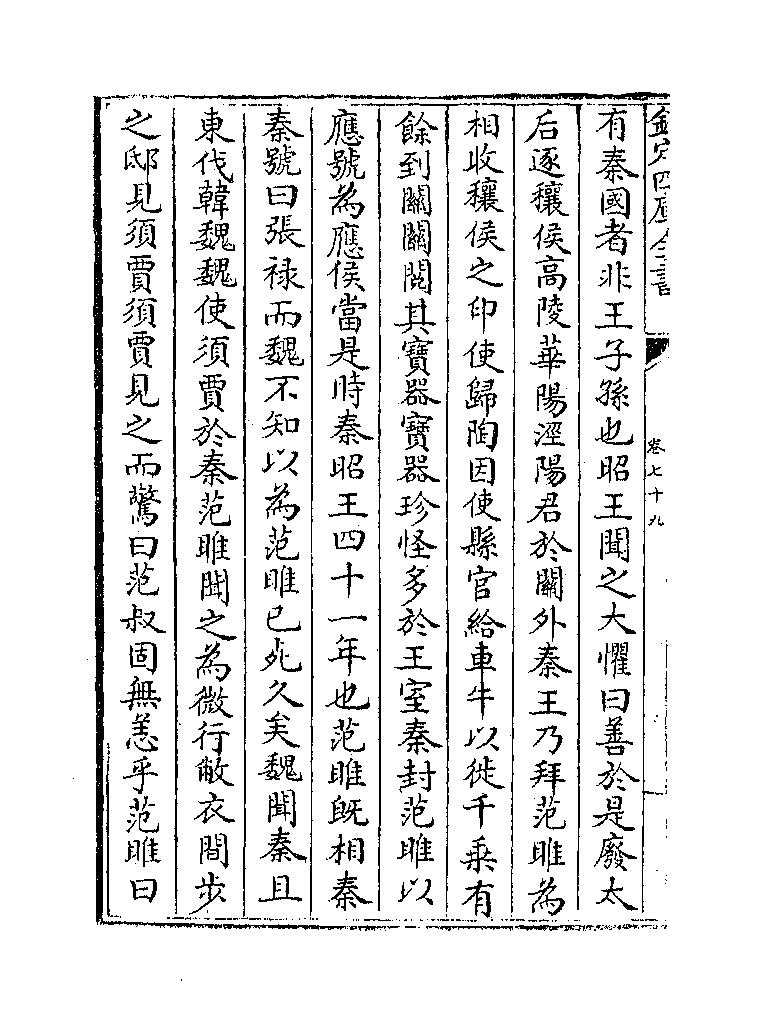 欽定四庫全書
卷七十九
有秦國者非王子孫也昭王聞之大懼曰善於是廢太
后逐穰侯高陵華陽涇陽君於關外秦王乃拜范雎為
相收穰侯之印使歸陶因使縣官給車牛以徙千乘有
餘到關關閱其寶器寶器珍怪多於王室秦封范雎以
應號為應侯當是時秦昭王四十一年也范雎既相秦
秦號曰張禄而魏不知以為范雎已死久矣魏聞秦且
東伐韓魏魏使須賈於秦范雎聞之為微行敝衣間步
之邸見須賈須賈見之而驚曰范叔固無恙乎范雎曰